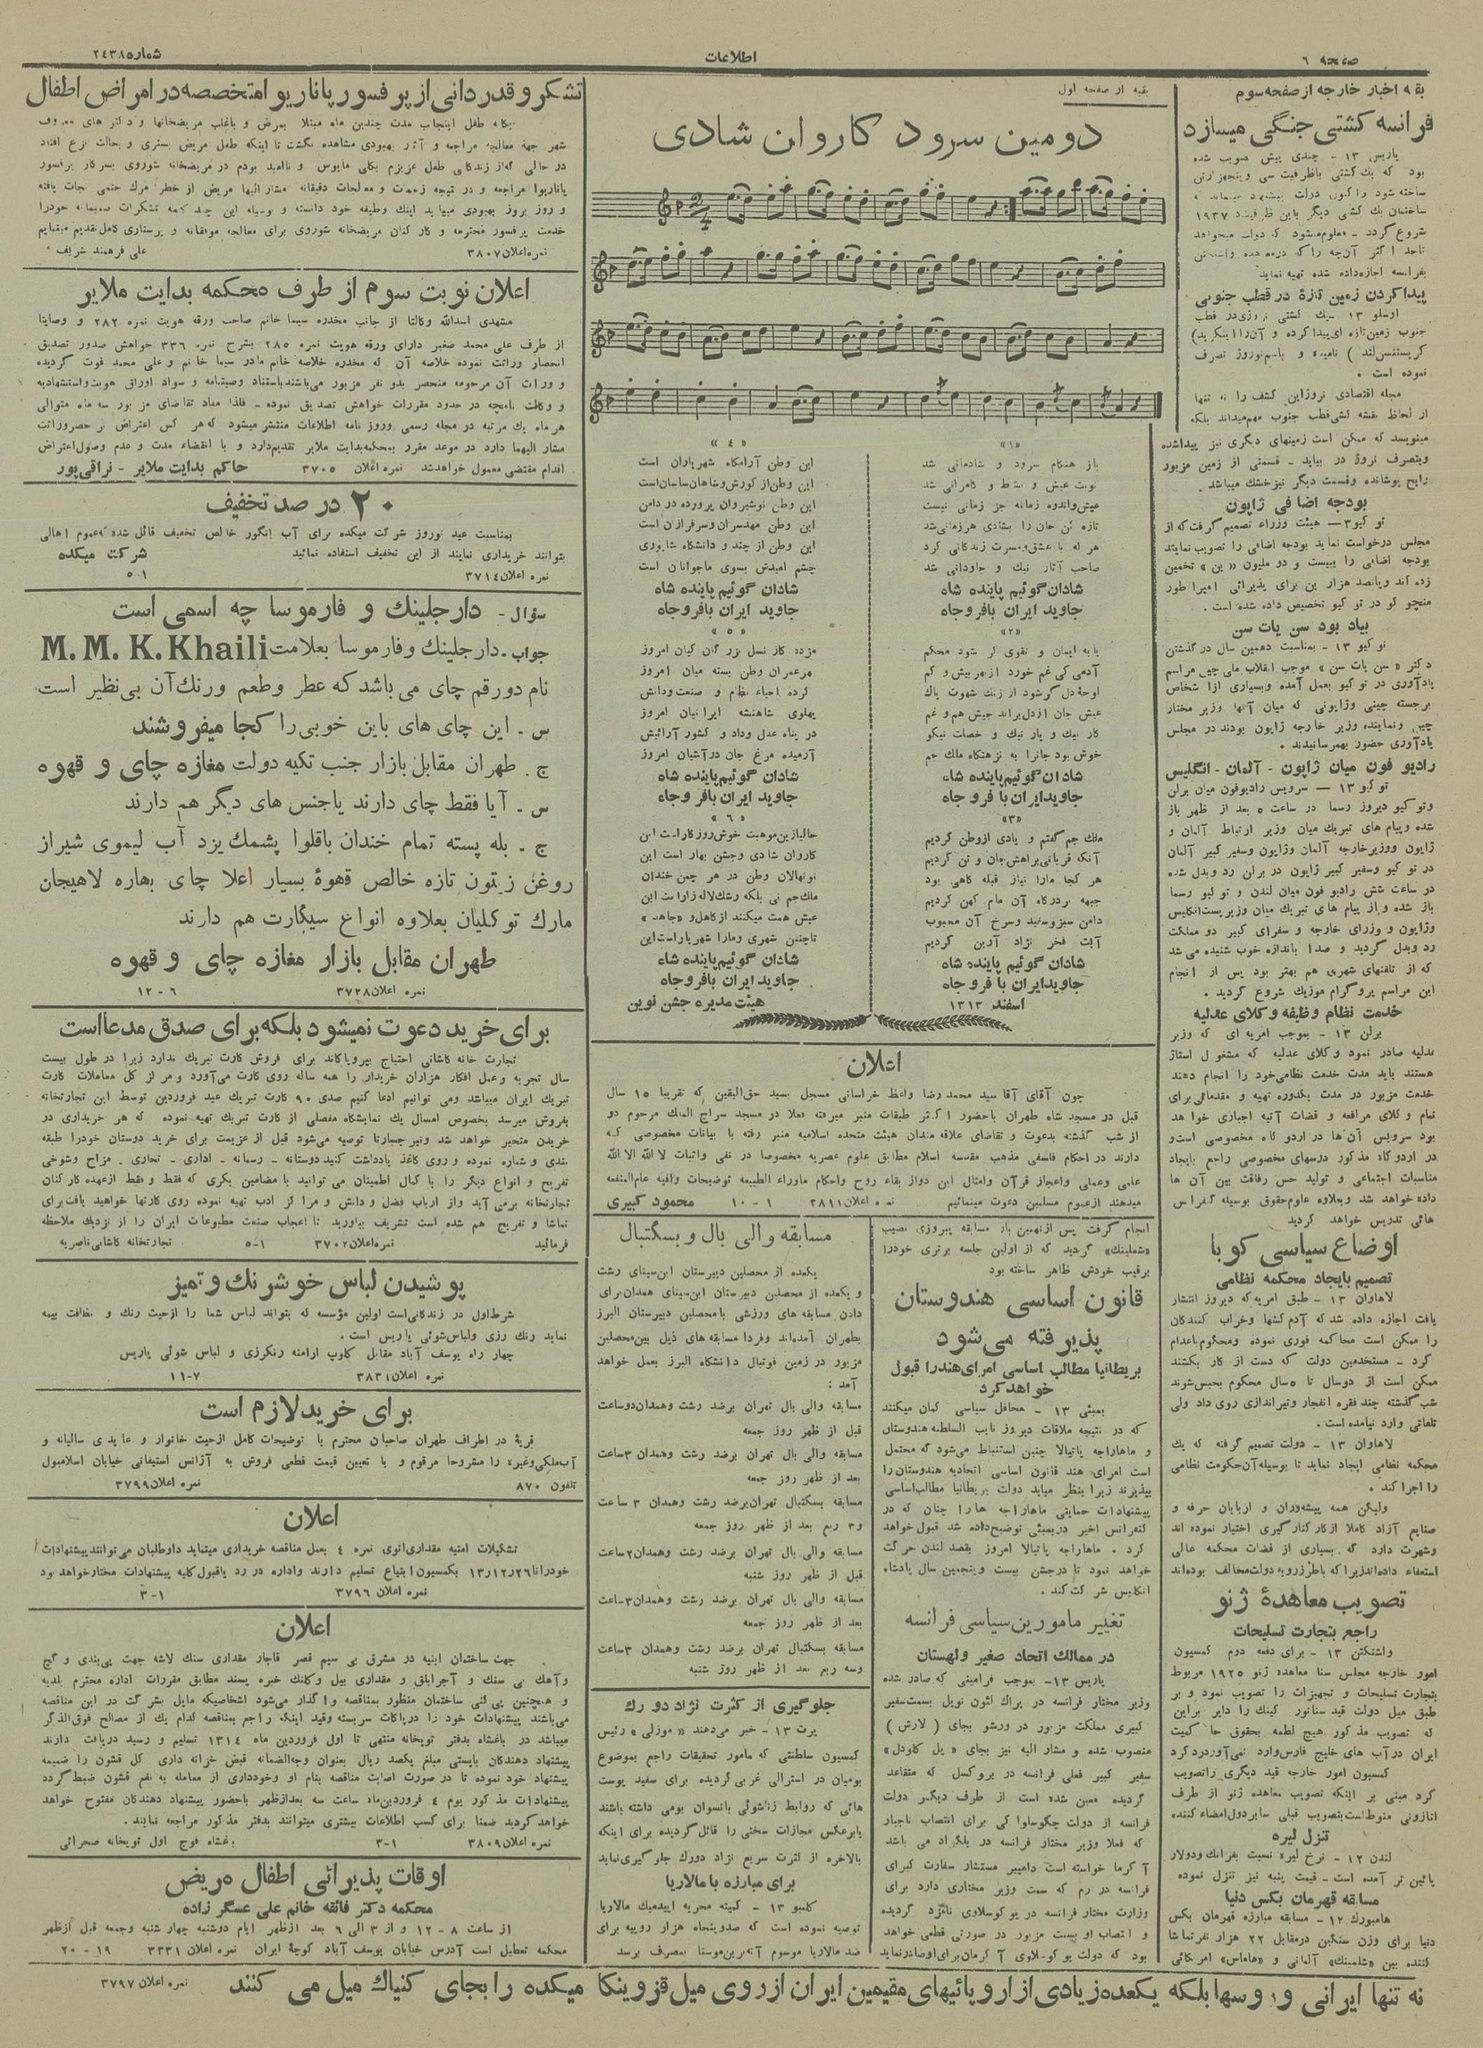 صفحه ٦
اطلاعات
شماره ٢٤٣٨
بقیه اخبار خارجه از صفحه سوم
فرانسه کشتی جنگی میسازد
پاریس ١٣ - چندی پیش تصویب شده
بود که یك کشتی باظرفیت سی و پنجهزار تن
شروع گردد - معلوم میشود که دولت میخواهد
بفرانسه اجازه داده شده تهیه نماید
پیدا کردن زمین تازهٔ در قطب جنوبی
نموده است .
مجله اقتصادی نروژ این کشف را نه تنها
از لحاظ نقشه کشی قطب جنوب مهم میداند بلکه
مینویسد که ممکن است زمینهای دیگری نیز پیدا شده
وبتصرف نروژ در بیاید - قسمتی از زمین مزبور
رایخ پوشانده وقسمت دیگر نیز خشك میباشد
بودجه اضافی ژاپون
توکیو ٣ – هیئت وزراء تصمیم گرفت که از
مجلس درخواست نماید بودجه اضافی را تصویب نمایند
بودجه اضافی را ببیست و دو ملیون « ین » تخمین
زده اند و پانصد هزار ین برای پذیرائی امپراطور
منچو کو در تو کیو تخصیص داده شده است .
بیاد بود سن یات سن
تو کیو ١٣ - بمناسبت دهمین سال در گذشتن
دکتر « سن یات سن » موجب انقلاب ملی چین مراسم
یادآوری در تو کیو بعمل آمده وبسیاری از اشخاص
برجسته چینی وژاپونی که میان آنها وزیر مختار
چین ونماینده وزیر خارجه ژاپون بودند در مجلس
یادآوری حضور بهمرسانیدند .
رادیو فون میان ژاپون - آلمان - انگلیس
تو کیو ١٣ – سرویس رادیوفون میان برلن
وتو کیو دیروز رسما در ساعت ٥ بعد از ظهر باز
شده و پیام های تبریك میان وزیر ارتباط آلمان و
ژاپون ووزیر خارجه آلمان وژاپون وسفیر کبیر آلمان
در تو کیو وسفیر کبیر ژاپون در برلن رد وبدل شده
در ساعت شش رادیو فون میان لندن و تو کیو رسما
باز شده و از پیام های تبریك میان وزیر پست انگلیس
وژاپون و وزرای خارجه و سفرای کبیر دو مملکت
رد وبدل گردید و صدا باندازه خوب شنیده می شد
که از تلفنهای شهری هم بهتر بود پس از انجام
این مراسم پروگرام موزیك شروع گردید .
خدمت نظام وظیفه و کلای عدلیه
برلن ١٣ - بموجب امریه ای که وزیر
عدلیه صادر نمود وکلای عدلیه که مشغول استاژ
هستند باید مدت خدمت نظامی خود را انجام دهند
خدمت مزبور در مدت یکدوره تهیه و مقدماتی برای
تمام وکلای مرافعه و قضات آتیه اجباری خواهد
بود سرویس آن ها در اردو گاه مخصوصی است و
در اردوگاه مذکور درسهای مخصوصی راجع بایجاد
مناسبات اجتماعی و تولید حس رفاقت بین آن ها
داده خواهد شد وبعلاوه علوم حقوق بوسیله کنفرانس
هائی تدریس خواهد گردید
اوضاع سیاسی کوبا
تصمیم بایجاد محکمه نظامی
لاهاوان ١٣ - طبق امریه که دیروز انتشار
یافت اجازه داده شد که آدم کشها وخراب کنندگان
را ممکن است محاکمه فوری نموده ومحکوم باعدام
کرد - مستخدمین دولت که دست از کار بکشند
ممکن است از دوسال تا ٥ سال محکوم بحبس شوند
شب گذشته چند فقره انفجار وتیراندازی روی داد ولی
تلفاتی وارد نیامده است .
لاهاوان ١٣ - دولت تصمیم گرفته که یك
محکمه نظامی ایجاد نماید تا بوسیله آن حکومت نظامی
را اجرا کند .
ولیکن همه پیشه وران و اربابان حرفه و
صنایع آزاد کاملا از کار کناره گیری اختیار نموده اند
وشهرت دارد که بسیاری از قضات محکمه عالی
استعفاء داده اند زیرا که باطرز رویه دولت مخالف بوده اند
تصویب معاهدهٔ ژنو
راجع بتجارت تسلیحات
واشنگتن ١٣ - برای دفعه دوم کمسیون
امور خارجه مجلس سنا معاهده ژنو ١٩٢٥ مربوط
بتجارت تسلیحات و تجهیزات را تصویب نمود و بر
طبق میل دولت قید سناتور کینك را دایر براین
که تصویب مذکور هیچ لطمه بحقوق حاکمیت
ایران در آب های خلیج فارس وارد نمی آورد رد کرد
کمسیون امور خارجه قید دیگری را تصویب
کرد مبنی بر اینکه تصویب معاهده ژنو از طرف
اتازونی منوط است بتصویب قبلی سایر دول امضاء کننده
تنزل لیره
لندن ١٢ - نرخ لیره نسبت بفرانك ودولار
پائین تر آمده است - قیمت پنبه نیز تنزل نموده
مسابقه قهرمان بکس دنیا
هامبورك ١٢ - مسابقه مبارزه قهرمان بکس
دنیا برای وزن سنگین درمقابل ٢٢ هزار نفر تماشا
کننده بین «شملینك» آلمانی و «هاماس» امریکائی
بقیه از صفحه اول
دومین سرود کاروان شادی
«١»
باز هنگام سرود و شادمانی شد
نوبت عیش و نشط و کامرانی شد
عیش وانده زمانه جز زمانی نیست
تازه کن جان را بشادی هر زمانی شد
هر که با عشق ومسرت زندگانی کرد
صاحب آثار نیك و جاودانی شد
شادان گوئیم پاینده شاه
جاوید ایران بافر وجاه
«٢»
پایه ایمان و تقوی گر شود محکم
آدمی کی غم خورد از بهر بیش و کم
لوحهٔ دل گر شود از زنك شهوت پاك
عیش جان از دل براند جیش هم و غم
کار نیك و یار نیك و خصلت نیکو
خوش بود جانرا به نزهتگاه ملك جم
شادان گوئیم پاینده شاه
جاوید ایران با فر وجاه
«٣»
ملك جم گفتم و یادی از وطن کردیم
آنکه قربانی براهش جان و تن کردیم
هر کجا مارا نیاز قبله گاهی بود
جبهه بر درگاه آن مام کهن کردیم
دامن سبز وسفید وسرخ آن محبوب
آیت فخر نژاد آرین کردیم
شادان گوئیم پاینده شاه
جاوید ایران با فر وجاه
اسفند ١٣١٣
«٤»
این وطن آرامگاه شهریاران است
این وطن از کورش وشاهان ساسان است
این وطن نوشیروان پرورده در دامن
این وطن مهد سران وسرفرازان است
این وطن از چند و دانشگاه شاپوری
چشم امیدش بسوی ما جوانان است
شادان گوئیم پاینده شاه
جاوید ایران بافر وجاه
«٥»
مژده کاز نسل بزرگان کیان امروز
مر عمران وطن بسته میان امروز
کرده احیاء نظام و صنعت و دانش
پهلوی شاهنشه ایرانیان امروز
در پناه عدل وداد و کشور آرائیش
آرمیده مرغ جان در آشیان امروز
شادان گوئیم پاینده شاه
جاوید ایران بافر وجاه
«٦»
حالیا زین موهبت خوش روزگار است این
کاروان شادی وجشن بهار است این
نونهالان وطن در هر چمن خندان
ملك جم نی بلکه رشك لاله زار است این
عیش همت میکنند از کاهل و «جاهد»
تا چنین شهری ومارا شهریار است این
شادان گوئیم پاینده شاه
جاوید ایران بافر وجاه
هیئت مدیره جشن نوین
اعلان
چون آقای آقا سید محمد رضا واعظ خراسانی مسجل بسید حق الیقین که تقریبا ١٥ سال
قبل در مسجد شاه طهران باحضور اکثر طبقات منبر میرفته فعلا در مسجد سراج الملك مرحوم دو
از شب گذشته بدعوت و تقاضای علاقه مندان هیئت متحده اسلامیه منبر رفته با بیانات مخصوصی که
دارند در احکام فلسفی مذهب مقدسه اسلام مطابق علوم عصریه مخصوصا در نفی واثبات لا اله الا الله
علمی وعملی واعجاز قرآن وامثال این دواز بقاء روح واحکام ماوراء الطبیعه توضیحات وافیه عام المنفعه
میدهند ازعموم مسلمین دعوت مینمائیم
نمره اعلان ٣٨١١
١ - ١٠
محمود کبیری
انجام گرفت پس از نهمین بار مسابقه پیروزی نصیب
«شملینك» گردید که از اولین جلسه برتری خود را
برقیب خودش ظاهر ساخته بود
قانون اساسی هندوستان
پذیرفته می شود
بریطانیا مطالب اساسی امرای هند را قبول
خواهد کرد
بمبئی ١٣ - محافل سیاسی گمان میکنند
که در نتیجه ملاقات دیروز نایب السلطنه هندوستان
و ماهاراجه پاتیالا چنین استنباط می شود که محتمل
است امرای هند قانون اساسی اتحادیه هندوستان را
بپذیرند زیرا بنظر میاید دولت بریطانیا مطالب اساسی
پیشنهادات حمایتی ماهاراجه ها را چنان که در
کنفرانس اخیر در بمبئی توضیح داده شد قبول خواهد
کرد . ماهاراجه پاتیالا امروز بقصد لندن حرکت
خواهد نمود تا درجشن بیست وپنجمین سال پادشاه
انگلیس شرکت کند .
تغییر مامورین سیاسی فرانسه
در ممالك اتحاد صغیر و لهستان
پاریس ١٣ - بموجب فرامینی که صادر شده
وزیر مختار فرانسه در پراك لئون نویل بسمت سفیر
کبیری مملکت مزبور در ورشو بجای ( لارش )
منصوب شده و مشار الیه نیز بجای « پل کلودل »
سفیر کبیر فعلی فرانسه در بروکسل که متقاعد
گردیده معین شده است از طرف دیگر دولت
فرانسه از دولت چکوسلواکی برای انتصاب ناجیار
که فعلا وزیر مختار فرانسه در بلگراد می باشد
آگرما خواسته است دامپیر مستشار سفارت کبرای
فرانسه در رم که سمت وزیر مختاری دارد برای
وزارت مختار فرانسه در یوگوسلاوی نامزد گردیده
و انتصاب او بسمت مزبور در صورتی قطعی خواهد
بود که دولت یوگوسلاوی آگرمان برای او صادر نماید
مسابقه والی بال و بسکتبال
یکعده از محصلین دبیرستان ابن سینای رشت
و یکعده از محصلین دبیرستان ابن سینای همدان برای
دادن مسابقه های ورزشی بامحصلین دبیرستان البرز
بطهران آمده اند وفردا مسابقه های ذیل بین محصلین
مزبور در زمین فوتبال دانشگاه البرز بعمل خواهد
آمد :
مسابقه والی بال تهران برضد رشت وهمدان دوساعت
قبل از ظهر روز جمعه
مسابقه والی بال تهران برضد رشت وهمدان ٣ ساعت
بعد از ظهر روز جمعه
مسابقه بسکتبال تهران برضد رشت وهمدان ٣ ساعت
و ٣ ربع بعد از ظهر روز جمعه
مسابقه والی بال تهران برضد رشت وهمدان ٢ ساعت
قبل از ظهر روز شنبه
مسابقه والی بال تهران برضد رشت وهمدان ٣ ساعت
بعد از ظهر روز جمعه
مسابقه بسکتبال تهران برضد رشت وهمدان ٣ ساعت
وسه ربع بعد از ظهر روز شنبه
جلوگیری از کثرت نژاد دو رك
پرت ١٣ - خبر می دهند « موزلی » رئیس
کمسیون سلطنتی که مامور تحقیقات راجع بموضوع
بومیان در استرالی غربی گردیده برای سفید پوست
هائی که روابط زناشوئی بانسوان بومی داشته باشند
یابر عکس مجازات سختی را قائل گردیده برای اینکه
بالاخره از کثرت سریع نژاد دورك جلوگیری نماید
برای مبارزه با مالاریا
کلمبو ١٣ - کمیته مجریه اپیدمیك مالاریا
توصیه نموده است که صدوپنجاه هزار روپیه برای
ضد مالاریا موسوم آتبرین موسنا بمصرف برسد
تشکر و قدردانی از پرفسور پاناریو امتخصصه در امراض اطفال
یگانه طفل اینجانب مدت چندین ماه مبتلا بمرض و باغلب مریضخانها و دکتر های معروف
شهر جهة معالجه مراجعه و آثار بهبودی مشاهده نگشت تا اینکه طفل مریض بستری و بحالت نزع افتاد
در حالی که از زندگانی طفل عزیزم بکلی مایوس و ناامید بودم در مریضخانه شوروی بسرکار پرفسور
پاناریوا مراجعه و در نتیجه زحمات و معالجات دقیقانه مشار الیها مریض از خطر مرك حتمی نجات یافته
و روز بروز بهبودی مییابد اینك وظیفه خود دانسته و بوسیله این چند کلمه تشکرات صمیمانه خود را
خدمت پرفسور محترمه و کارکنان مریضخانه شوروی برای معالجه موفقانه و پرستاری کامل تقدیم مینمایم
نمره اعلان ٣٨٠٧
علی فرهمند شریف
اعلان نوبت سوم از طرف محکمه بدایت ملایر
مشهدی اسدالله وکالتا از جانب مخدره سیما خانم صاحب ورقه هویت نمره ٢٨٢ و وصایتا
از طرف علی محمد صغیر دارای ورقه هویت نمره ٢٨٥ بشرح نمره ٣٣٦ خواهش صدور تصدیق
انحصار وراثت نموده خلاصه آن که مخدره خلاصه خانم مادر سیما خانم و علی محمد فوت گردیده
و وراث آن مرحومه منحصر بدو نفر مزبور می باشند باستناد وصیتنامه و سواد اوراق هویت واستشهادیه
و وکالت نامچه در حدود مقررات خواهش تصدیق نموده - فلذا مفاد تقاضای مزبور سه ماه متوالی
هر ماه یك مرتبه در مجله رسمی وروزنامه اطلاعات منتشر میشود که هر کس اعتراض بر حصر وراثت
مشار الیهما دارد در موعد مقرر بمحکمه بدایت ملایر تقدیم دارد و با انقضاء مدت و عدم وصول اعتراض
اقدام مقتضی معمول خواهد شد
نمره اعلان ٣٧٠٥
حاکم بدایت ملایر - نراقی پور
٢٠ در صد تخفیف
بمناسبت عید نوروز شرکت میکده برای آب انگور خالص تخفیف قائل شده که عموم اهالی
بتوانند خریداری نمایند از این تخفیف استفاده نمائید
شرکت میکده
نمره اعلان ٣٧١٤
١-٥
سؤال - دارجلینك و فارموسا چه اسمی است
جواب - دارجلینك و فارموسا بعلامت M. M. K. Khaili
نام دو رقم چای می باشد که عطر وطعم ورنك آن بی نظیر است
س - این چای های باین خوبی را کجا میفروشند
ج . طهران مقابل بازار جنب تکیه دولت مغازه چای و قهوه
س . آیا فقط چای دارند یا جنس های دیگر هم دارند
ج - بله پسته تمام خندان باقلوا پشمك یزد آب لیموی شیراز
روغن زیتون تازه خالص قهوهٔ بسیار اعلا چای بهاره لاهیجان
مارك توکلیان بعلاوه انواع سیگارت هم دارند
طهران مقابل بازار مغازه چای و قهوه
نمره اعلان ٣٧٢٨
٦ - ١٢
برای خرید دعوت نمیشود بلکه برای صدق مدعا است
تجارت خانه کاشانی احتیاج بپروپاکاند برای فروش کارت تبریك ندارد زیرا در طول بیست
سال تجربه وعمل افکار هزاران خریدار را همه ساله روی کارت می آورد و مرکز کل معاملات کارت
تبریك ایران میباشد ومی توانیم ادعا کنیم صدی ٩٠ کارت تبریك عید فروردین توسط این تجارتخانه
بفروش میرسد بخصوص امسال یك نمایشگاه مفصلی از کارت تبریك تهیه نموده که هر خریداری در
خریدن متحیر خواهد شد ونیز جسارتا توصیه می شود قبل از عزیمت برای خرید دوستان خود را طبقه
بندی و شماره نموده و روی کاغذ یادداشت کنید دوستانه - رسمانه - اداری - تجاری - مزاح وشوخی
تفریح و انواع دیگر را با کمال اطمینان می توانید با مضامین بکری که فقط و فقط از عهده کارکنان
تجارتخانه برمی آید واز ارباب فضل و دانش و مراکز ادب تهیه نموده روی کارتها خواهید یافت برای
تماشا و تفریح هم شده است تشریف بیاورید تا اعجاب صنعت مطبوعات ایران را از نزدیك ملاحظه
فرمائید
نمره اعلان ٣٧٠٢
١-٥
تجارتخانه کاشانی ناصریه
پوشیدن لباس خوشرنك و تمیز
شرط اول در زندگانی است اولین مؤسسه که بتواند لباس شما را ازحیث رنك و نظافت بیمه
نماید رنك رزی ولباس شوئی پاریس است .
چهار راه یوسف آباد مقابل کلوپ ارامنه رنگرزی و لباس شوئی پاریس
نمره اعلان ٣٨٣١
٧-١١
برای خرید لازم است
قریهٔ در اطراف طهران صاحبان محترم با توضیحات کامل ازحیث خانوار و عایدی سالیانه و
آب ملکی وغیره را مشروحا مرقوم و با تعیین قیمت قطعی فروش به آژانس استیفانی خیابان اسلامبول
تلفون ٨٧٠
نمره اعلان ٣٧٩٩
اعلان
تشکیلات امنیه مقداری اتوی نمره ٤ بعمل مناقصه خریداری مینماید داوطلبان می توانند پیشنهادات
خود را تا ١٣/١٢/٢٦ بکمسیون ابتیاع تسلیم دارند واداره در رد یا قبول کلیه پیشنهادات مختار خواهد بود
نمره اعلان ٣٧٩٦
١-٣
اعلان
جهت ساختمان ابنیه در مشرق بی سیم قصر قاجار مقداری سنك لاشه جهت پی بندی و گچ
وآهك بی سنك و آجر ابلق و مقداری بیل وکلنك خبره پسند مطابق مقررات اداره محترم بلدیه
و همچنین پی کنی ساختمان منظور بمناقصه واگذار می شود اشخاصیکه مایل بشرکت در این مناقصه
می باشند پیشنهادات خود را در پاکات سربسته وقید اینکه راجع بمناقصه کدام یك از مصالح فوق الذکر
میباشد در باغشاه بدفتر توپخانه منتهی تا اول فروردین ماه ١٣١٤ تسلیم و رسید دریافت دارند
پیشنهاد دهندگان بایستی مبلغ یکصد ریال بعنوان وجه الضمانه قبض خزانه داری کل قشون را ضمیمه
پیشنهاد خود نموده تا در صورت اصابت مناقصه بنام او وخودداری از معامله به نفع قشون ضبط گردد
پیشنهادات مذکور یوم ٤ فروردین ماه ساعت سه بعدازظهر باحضور پیشنهاد دهندگان مفتوح خواهد
خواهد گردید ضمنا برای کسب اطلاعات بیشتری میتوانند بدفتر مذکور مراجعه نمایند .
نمره اعلان ٣٨٠٩
١-٣
باغشاه فوج اول توپخانه صحرائی
اوقات پذیرائی اطفال مریض
محکمه دکتر فائقه خانم علی عسگر زاده
از ساعت ٨ - ١٢ و از ٣ الی ٦ بعد ازظهر ایام دوشنبه چهار شنبه وجمعه قبل ازظهر
محکمه تعطیل است آدرس خیابان یوسف آباد کوچهٔ ایران
نمره اعلان ٣٣٣١
١٩ - ٢٠
نه تنها ایرانی و روسها بلکه یکعده زیادی از اروپائیهای مقیمین ایران از روی میل قزوینکا میکده را بجای کنیاك میل می کنند
نمره اعلان ٣٧٩٧